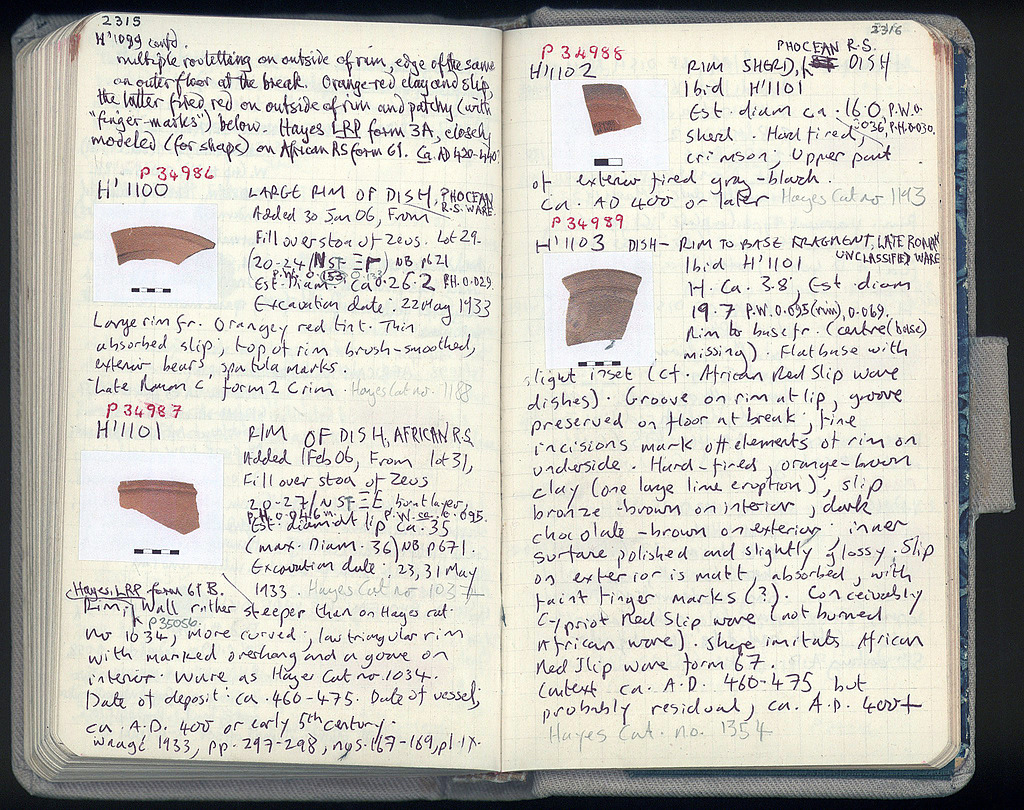 2315
H'1099 contd.
multiple rouletting on outside of rim, edge of the same
on outer floor at the break. Orange-red clay and slip,
the latter fired red on outside of rim and patchy (with
"finger-marks") below. Hayes LRP form 3A, closely
modeled (for shape) on African RS form 61. Ca. AD 420-440
P 34986
H'1100 LARGE RIM OF DISH, PHOCEAN
R.S. WARE.
Added 30 Jan 06, From
Fill over stoa of Zeus. Lot 29.
(20-24/ΝΣΤ-ΞΓ) NB p621
P.W. 0.153
Est. Diam. ca 0.26.2 P.H. 0.029.
Excavation date: 22 May 1933
Large rim fr. Orangey red tint. Thin
absorbed slip, top of rim brush-smoothed,
exterior bears spatula marks.
'Late Roman C' form 2C rim. Hayes Cat no. 1188
P 34987
H'1101 RIM OF DISH, AFRICAN R.S.
Added 1 Feb 06, From lot 31,
Fill over stoa of Zeus
20-27/ΝΣΤ-ΞΕ, burnt layer,
P.H. 0.046 m. P.W. ca. 0.095.
Est. diam at lip ca. 35
(max. Diam. 36) NB p671.
Excavation date: 23, 31 May
1933. Hayes Cat no 1037
Hayes, LRP form 61B.
Rim; Wall rather steeper than on Hayes cat
P35056.
no 1034, more curved; low triangular rim
with marked overhang and a groove on
interior. Ware as Hayes Cat no. 1034.
Date of deposit: ca. 460-475. Date of vessel;
ca. A.D. 400 or early 5th century.
Waagé 1933, pp. 297-298, nos. 167-169, pl. IX.
2316
P 34988
PHOCEAN R.S.
H'1102 RIM SHERD, DISH
Ibid H'1101
Est. diam ca. 16.0, P.W.0.
036, P.H.0.030.
sherd. Hard fired,
crimson; Upper part
of exterior fired gray-black.
Ca. AD 400 or later Hayes Cat no 1193
P 34989
H'1103 DISH- RIM TO BASE FRAGMENT, LATE ROMAN
UNCLASSIFIED WARE
Ibid H'1101
H. Ca. 3.8, Est diam
19.7 P.W. 0.095 (rim), 0.069.
Rim to base fr. (centre (base)
missing). Flat base with
slight inset (cf. African Red Slip ware
dishes). Groove on rim at lip, groove
preserved on floor at break; fine
incisions mark off elements of rim on
underside. Hard-fired, orange-brown
clay (one large lime eruption), slip
bronze-brown on interior, dark
chocolate-brown on exterior; inner
surface polished and slightly glossy. Slip
on exterior is matt, absorbed, with
faint finger marks (?). Conceivably
Cypriot Red Slip ware (not burned
African ware). Shape imitates African
Red Slip ware form 67.
Context ca. A.D. 460-475 but
probably residual, ca. A.D. 400+
Hayes Cat. no. 1354